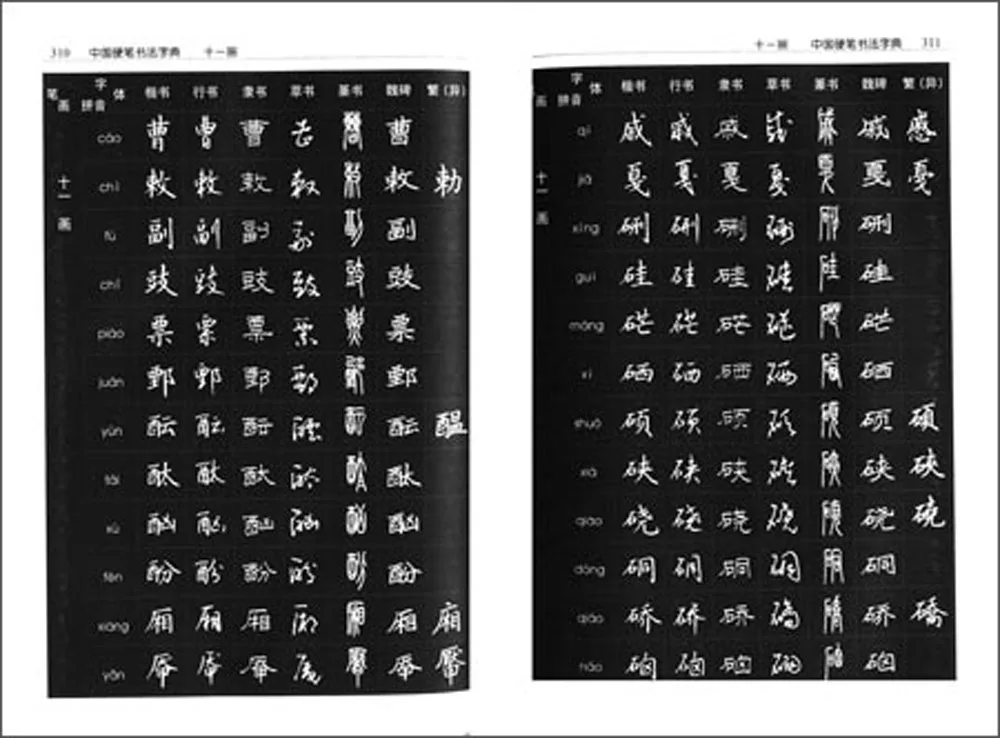 310 中国硬笔书法字典 十一画
笔画 字体 拼音 楷书 行书 隶书 草书 篆书 魏碑 繁(异)
十一画
cáo 曹 曹 曹 曹 曹 曹
chì 敕 敕 敕 敕 敕 敕 勅
fù 副 副 副 副 副 副
chǐ 豉 豉 豉 豉 豉 豉
piào 票 票 票 票 票 票
juàn 鄄 鄄 鄄 鄄 鄄 鄄
yùn 酝 酝 酝 酝 酝 酝 醖
tài 酞 酞 酞 酞 酞 酞
xù 酗 酗 酗 酗 酗 酗
fēn 酚 酚 酚 酚 酚 酚
xiāng 厢 厢 厢 厢 厢 厢 廂
yǎn 厣 厣 厣 厣 厣 厣 厴
十一画 中国硬笔书法字典 311
画 字体 拼音 楷书 行书 隶书 草书 篆书 魏碑 繁(异)
十一画
qī 戚 戚 戚 戚 戚 戚 慼
jiá 戛 戛 戛 戛 戛 戛 戞
xíng 硎 硎 硎 硎 硎 硎
guī 硅 硅 硅 硅 硅 硅
máng 硭 硭 硭 硭 硭 硭
xī 硒 硒 硒 硒 硒 硒
shuò 硕 硕 硕 硕 硕 硕 碩
xiá 硖 硖 硖 硖 硖 硖 硤
qiāo 硗 硗 硗 硗 硗 硗 磽
dòng 硐 硐 硐 硐 硐 硐
qiáo 硚 硚 硚 硚 硚 硚 礄
náo 硇 硇 硇 硇 硇 硇